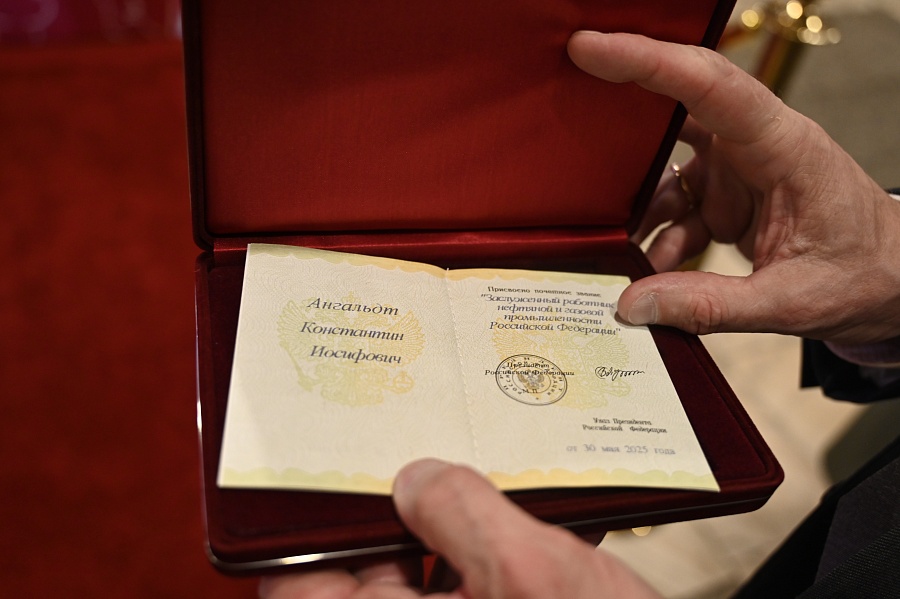 Ангальдт
Константин
Иосифович
Присвоено почетное звание
"Заслуженный работник
нефтяной и газовой
промышленности
Российской Федерации"
Президент
Российской Федерации
М.П.
Указ Президента
Российской Федерации
от 30 мая 2025 года